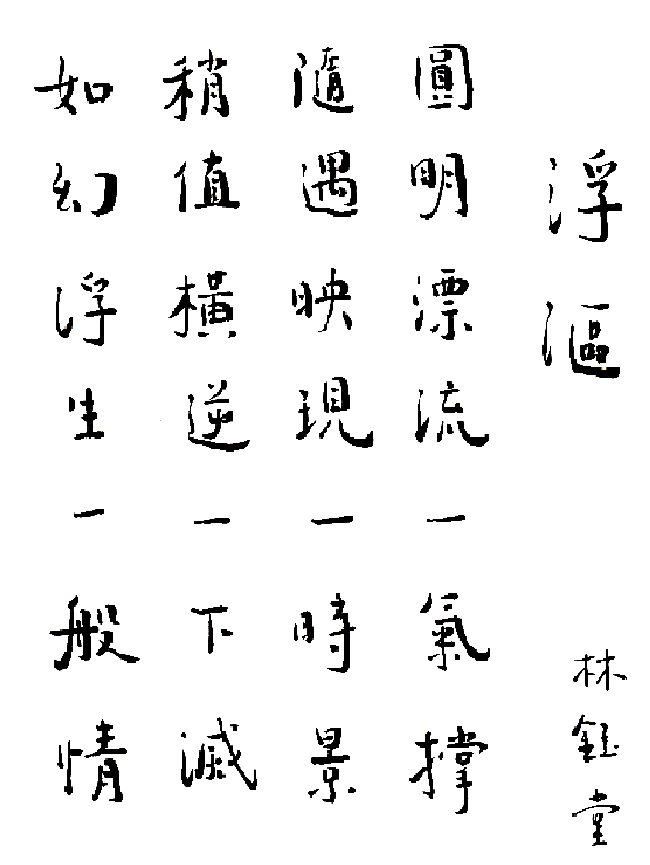 浮漚
林鈺堂
圓明漂流一氣撐
隨遇映現一時景
稍值橫逆一下滅
如幻浮生一般情